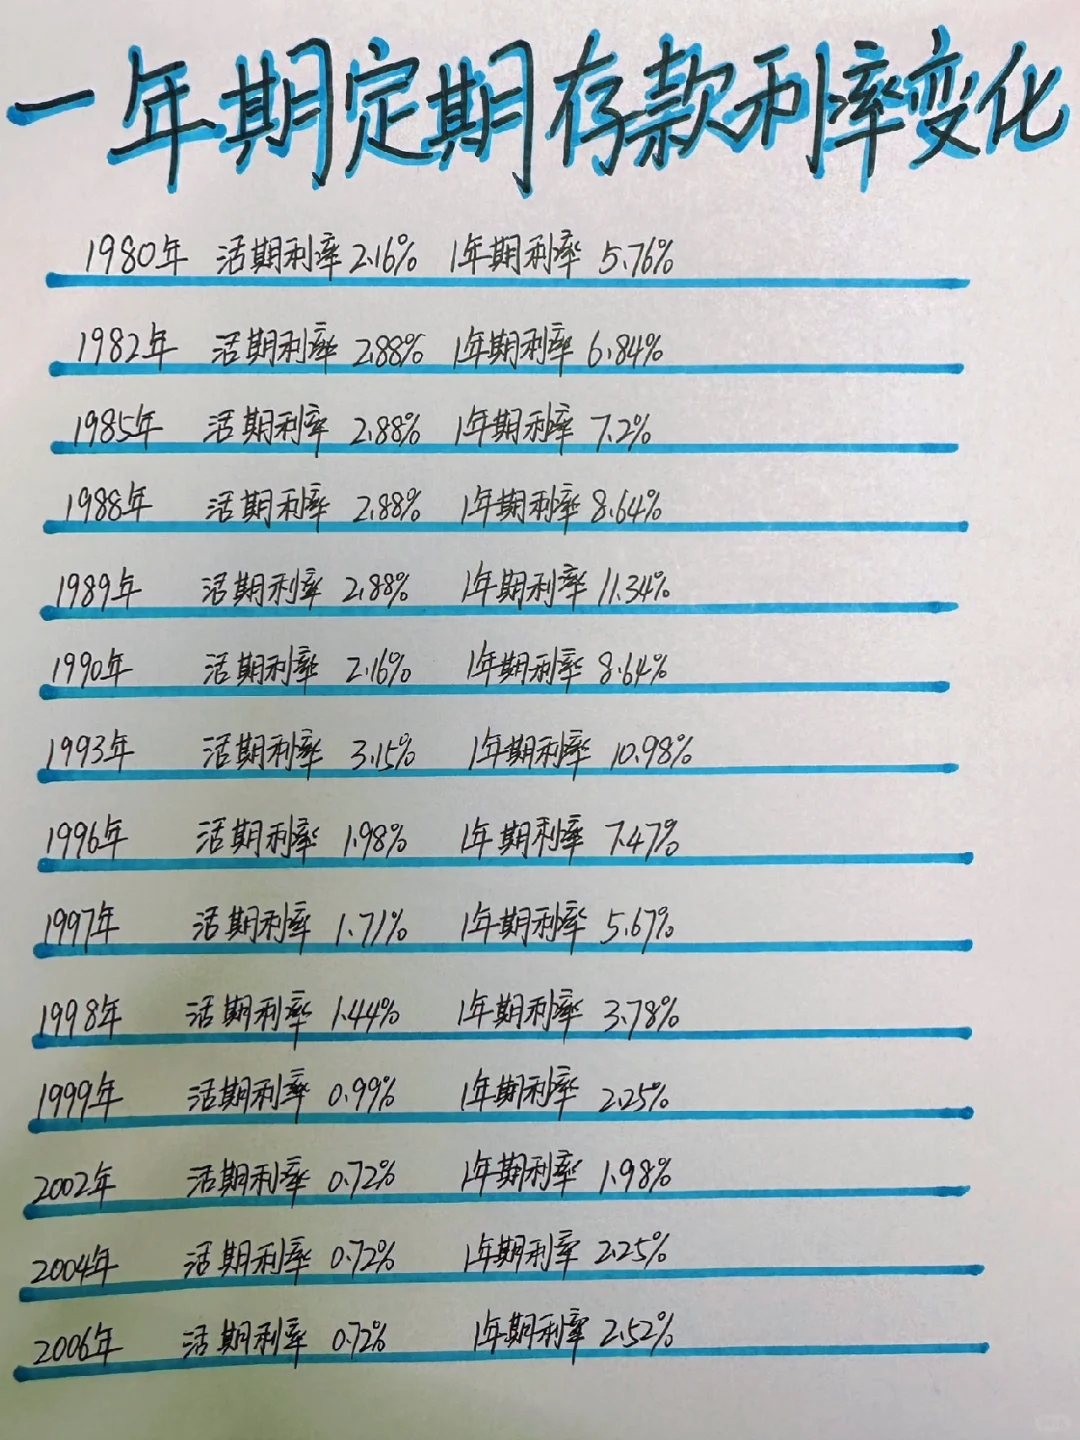 一年期定期存款利率变化
1980年 活期利率 2.16% 1年期利率 5.76%
1982年 活期利率 2.88% 1年期利率 6.84%
1985年 活期利率 2.88% 1年期利率 7.2%
1988年 活期利率 2.88% 1年期利率 8.64%
1989年 活期利率 2.88% 1年期利率 11.34%
1990年 活期利率 2.16% 1年期利率 8.64%
1993年 活期利率 3.15% 1年期利率 10.98%
1996年 活期利率 1.98% 1年期利率 7.47%
1997年 活期利率 1.71% 1年期利率 5.67%
1998年 活期利率 1.44% 1年期利率 3.78%
1999年 活期利率 0.99% 1年期利率 2.25%
2002年 活期利率 0.72% 1年期利率 1.98%
2004年 活期利率 0.72% 1年期利率 2.25%
2006年 活期利率 0.72% 1年期利率 2.52%